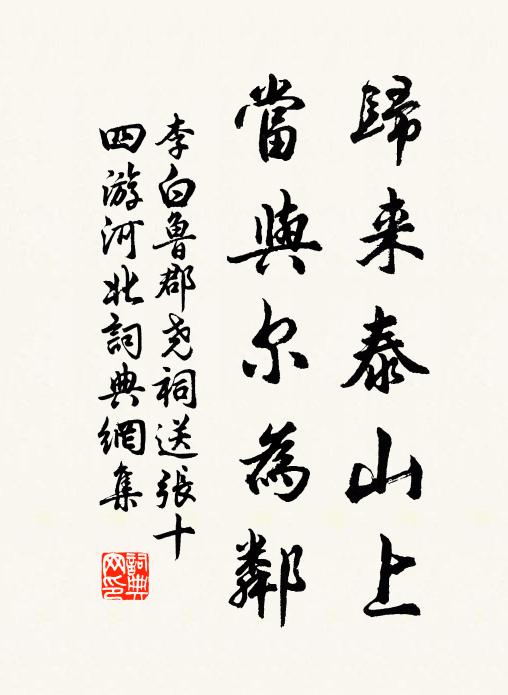 歸来泰山上
當與尔為鄰
李白魯郡尧祠送張十
四游河北詞典網集
詞典网印